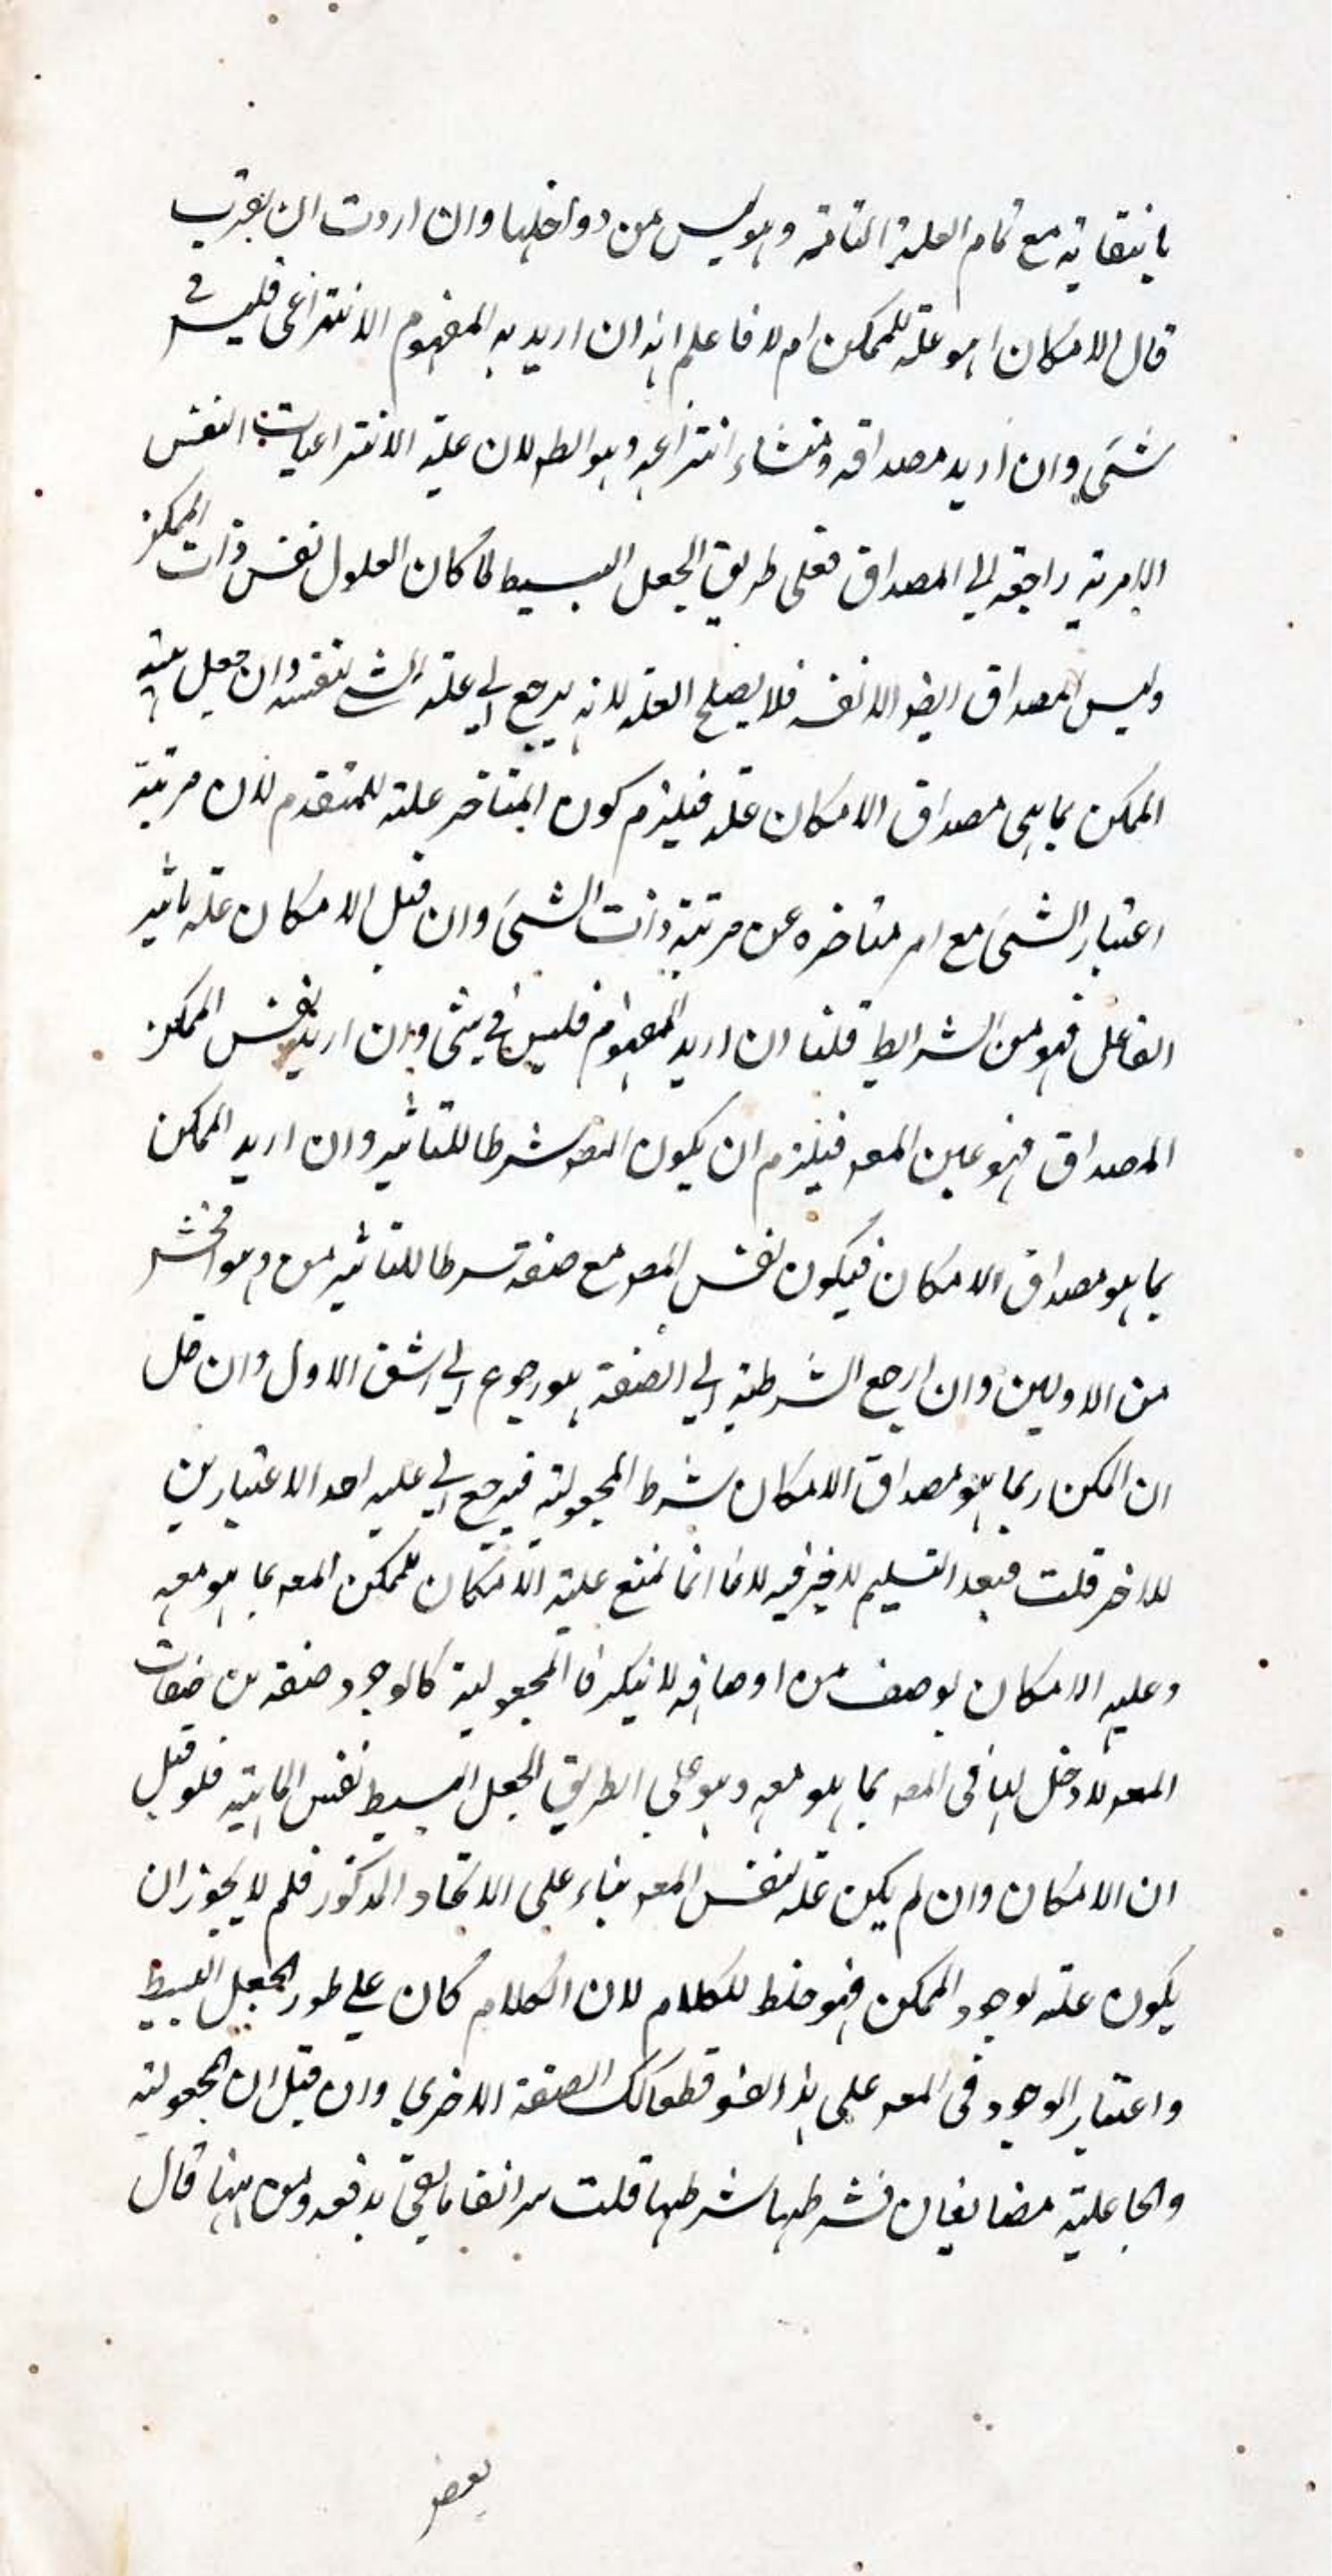 بانتفائه مع تمام العلة التامة وهو ليس من دواخلها وان اردت ان
قال الامكان اهو علة للممكن ام لا فاعلم انه ان اريد به المفهوم الانتزاعى فليس فى
شئ وان اريد مصداقه ومنشاء انتزاعه وهو الط لان علية الانتزاعيات النفس
الامرية راجعة الي المصداق فعلى طريق الجعل البسيط لما كان المعلول نفس ذات الممكن
وليس المصداق ايضا الا نفسه فلا يصلح العلة لانه يرجع الي علة الشئ لنفسه وان جعل
الممكن بما هى مصداق الامكان علة فيلزم كون المتاخر علة للمتقدم لان مرتبة
اعتبار الشئ مع امر متاخره عن مرتبة ذات الشئ وان قيل الامكان علة تاثير
الفاعل فهو من الشرايط قلنا ان اريد المفهوم فليس فى شئ وان اريد نفس الممكن
المصداق فهو عين المعه فيلزم ان يكون المعه شرطا للتاثير وان اريد الممكن
بما هو مصداق الامكان فيكون نفس المعه مع صفة شرطا للتاثير وهو افحش
من الاولين وان ارجع الشرطية الي الصفة هو رجوع الي الشق الاول وان قيل
ان الممكن بما هو مصداق الامكان شرط المجعولية فيرجع الي علية احد الاعتبارين
للاخر قلت فبعد التسليم لا خير فيه لانا انما نمنع علية الامكان للممكن المعه بما هو معه
وعلية الامكان لوصف من اوصافه لا ينكرنا المجعولية كالوجود صفة من صفات
المعه لا دخل لها فى المعه بما هو معه وهو على الطريق الجعل البسيط نفس الماهية فلو قيل
ان الامكان وان لم يكن علة لنفس المعه بناء على الاتحاد المذكور فلم لا يجوز ان
يكون علة لوجود الممكن فهو خلط للكلام لان الكلام كان على طور الجعل البسيط
واعتبار الوجود فى المعه على هذا النحو قطعا لك الصفة الاخرى وان قيل ان المجعولية
والجاعلية مضايفان فشرطها شرطها قلت مر انفا ما يفى بدفعه ومن ههنا قال
بعض